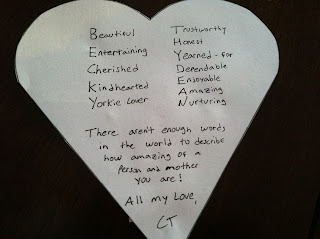 Beautiful
Entertaining
Cherished
Kindhearted
Yorkie Lover
Trustworthy
Honest
Yearned-for
Dependable
Enjoyable
Amazing
Nurturing
There aren't enough words
in the world to describe
how amazing of a
person and mother
you are!
All my Love,
CT